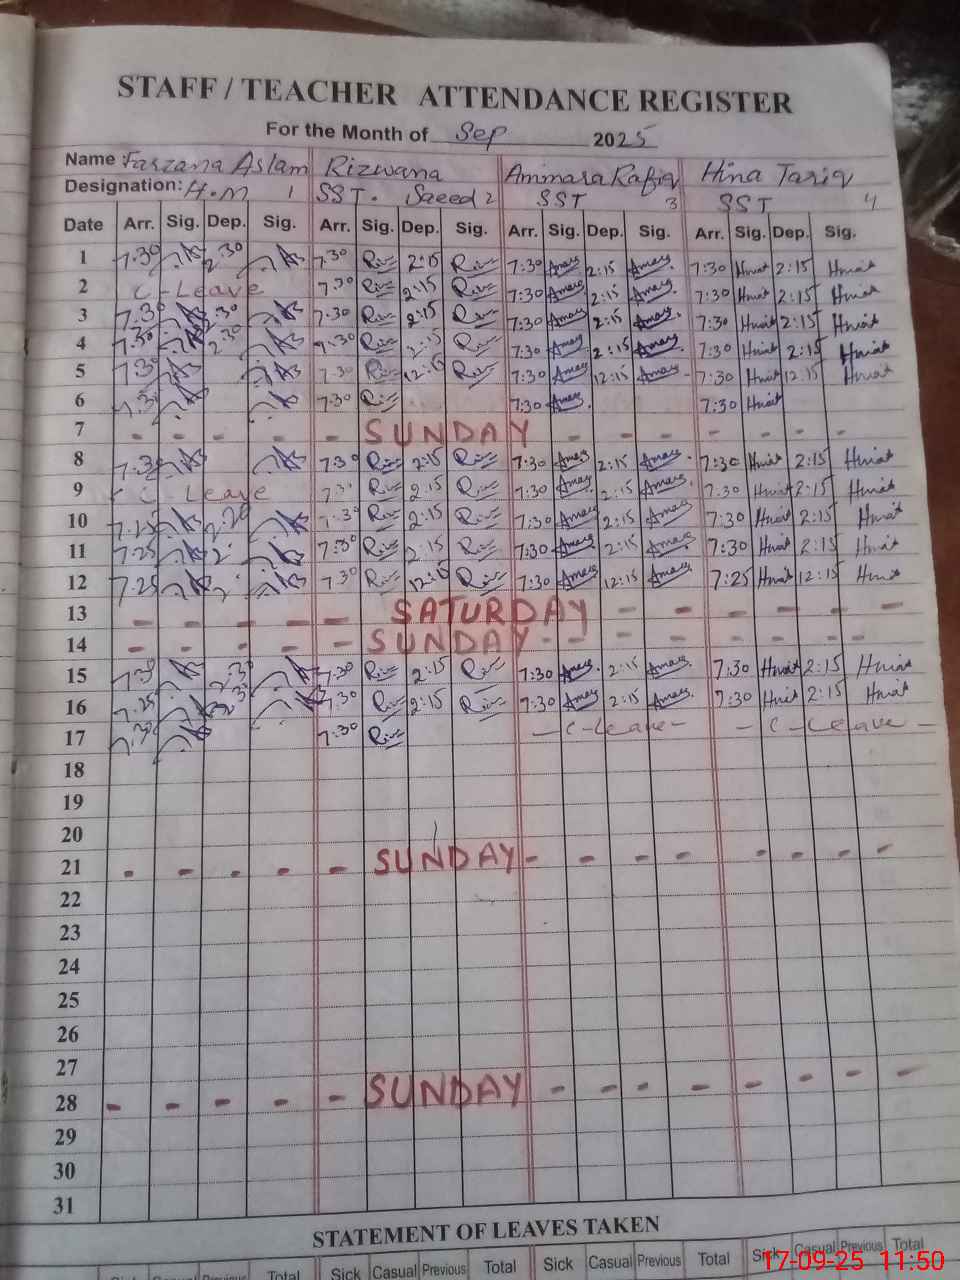 STAFF / TEACHER ATTENDANCE REGISTER
For the Month of Sep 2025
Name : Farzana Aslam Rizwana Ammara Rafiq Hina Tariq
Designation: H.M 1 SST. Saeed 2 SST 3 SST 4
Date Arr. Sig. Dep. Sig. Arr. Sig. Dep. Sig. Arr. Sig. Dep. Sig. Arr. Sig. Dep. Sig.
1 7.30 2.30 7.30 Riz 2:15 Riz 7:30 2:15 7:30 2:15
2 C - Leave 7.30 Riz 2:15 Riz 7:30 2:15 7:30 2:15
3 7.30 2.30 7.30 Riz 2:15 Riz 7:30 2:15 7:30 2:15
4 7.30 2.30 7.30 Riz 2:15 Riz 7:30 2:15 7:30 2:15
5 7.30 7.30 Riz 12:15 Riz 7:30 12:15 7:30 12:15
6 7.30 7:30 Riz 7:30 7:30
7 - - - - - SUNDAY - - - - - - -
8 7.30 7.30 Riz 2:15 Riz 7:30 2:15 7:30 2:15
9 C - Leave 7.30 Riz 2:15 Riz 7:30 2:15 7:30 2:15
10 7.25 2.20 7.30 Riz 2:15 Riz 7:30 2:15 7:30 2:15
11 7.25 7:30 Riz 2:15 Riz 7:30 2:15 7:30 2:15
12 7.25 7.30 Riz 12:15 Riz 7:30 12:15 7:25 12:15
13 - - - - - SATURDAY - - - - - -
14 - - - - - SUNDAY - - - - - - -
15 7.30 2.30 7.30 Riz 2:15 Riz 7:30 2:15 7:30 2:15
16 7.25 2.30 7.30 Riz 2:15 Riz 7:30 2:15 7:30 2:15
17 7.30 7:30 Riz - C - Leave - - C - Leave -
18
19
20
21 - - - - - SUNDAY - - - - - - - -
22
23
24
25
26
27
28 - - - - - SUNDAY - - - - - - - -
29
30
31
STATEMENT OF LEAVES TAKEN
Sick Casual Previous Total Sick Casual Previous Total Sick Casual Previous Total Sick Casual Previous Total
17-09-25 11:50